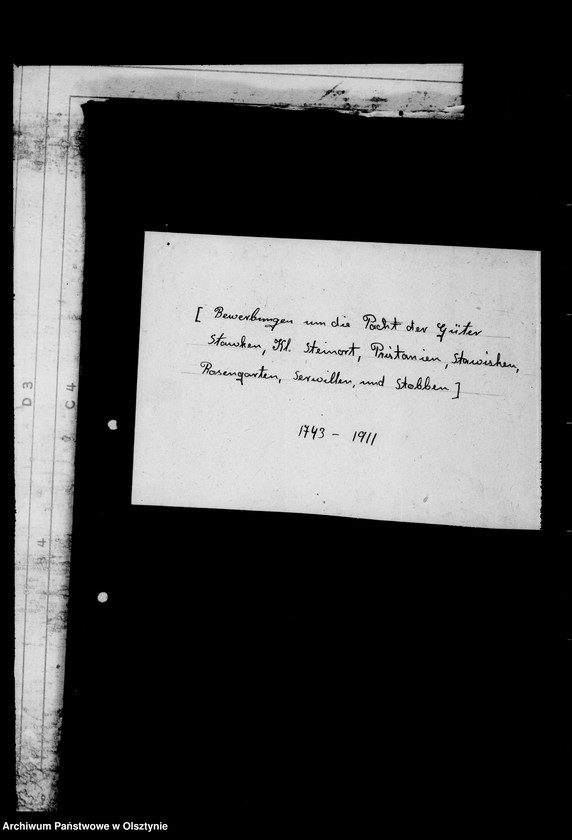 [ Bewerbungen um die Pacht der Güter
Stawken, Kl. Steinort, Pristanien, Stawisken,
Rosengarten, Serwillen, und Stobben ]
1743 – 1911
D3
C4
34
Archiwum Państwowe w Olsztynie